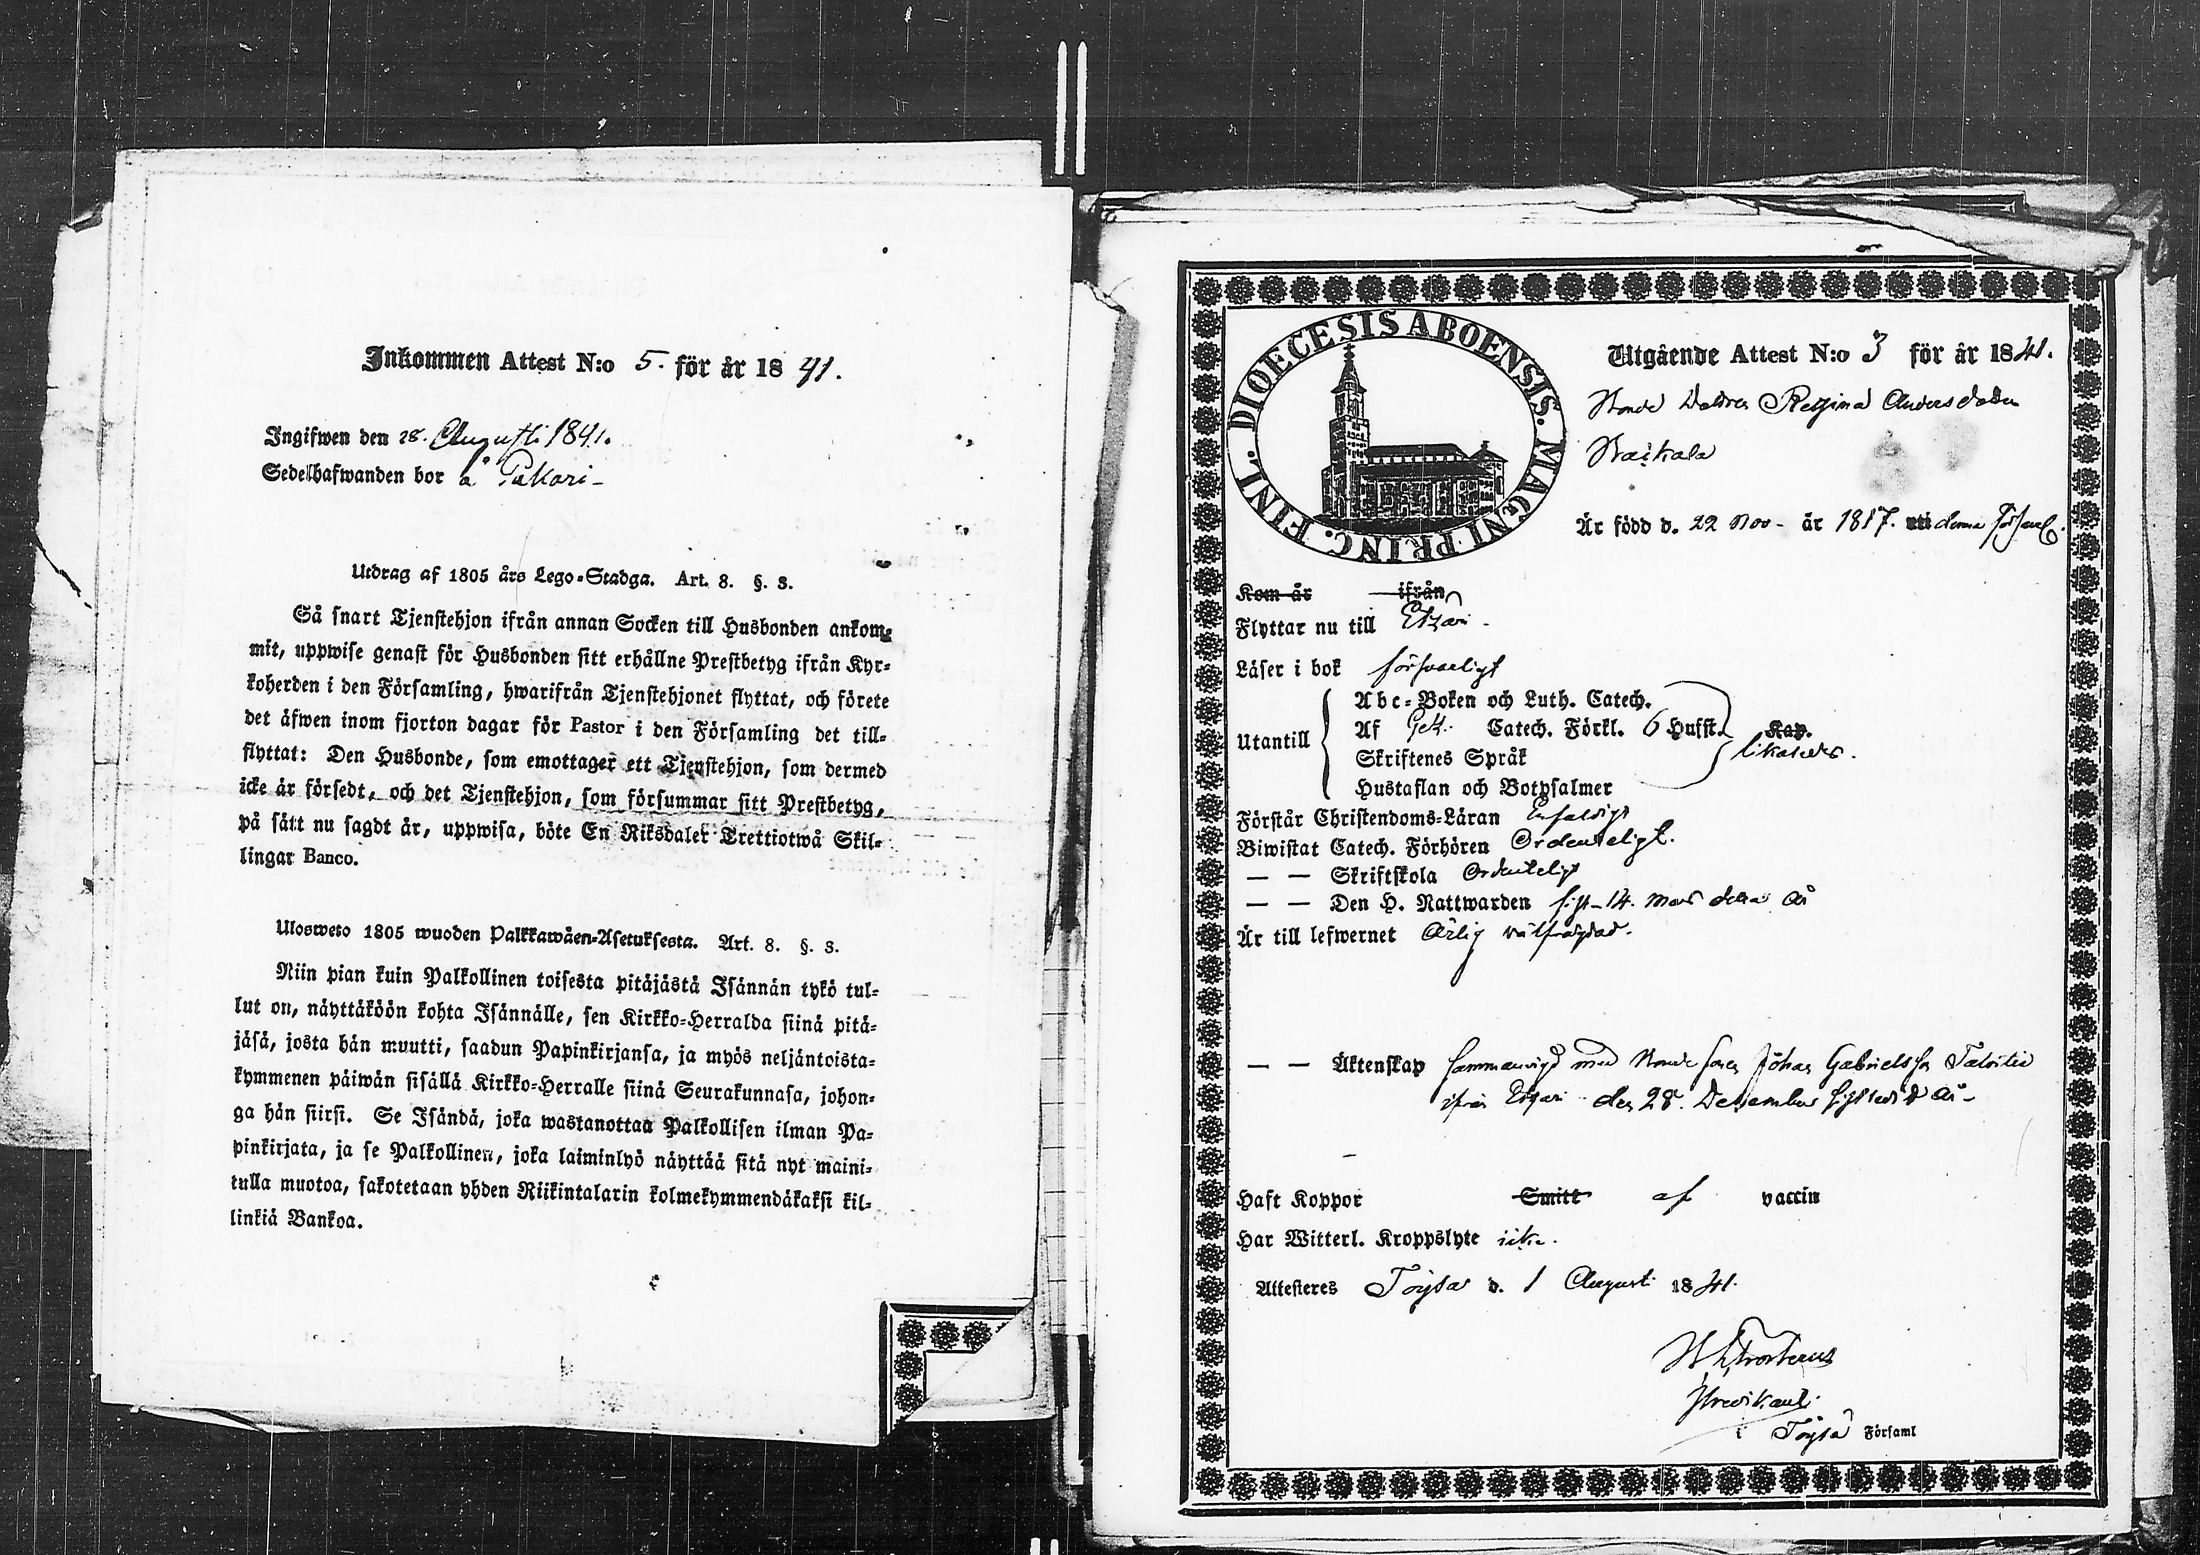 Inkommen Attest N:o 5. för år 1841.
Ingifwen den 28. Augusti 1841.
Sedelhafwanden bor å Pakari
Utdrag af 1805 års Lego-Stadga. Art. 8. §. 3.
Så snart Tjenstehjon ifrån annan Socken till Husbonden ankom-
mit, uppwise genast för Husbonden sitt erhållne Prestbetyg ifrån Kyr-
koherden i den Församling, hwarifrån Tjenstehjonet flyttat, och förete
det äfwen inom fjorton dagar för Pastor i den Församling det till-
flyttat: Den Husbonde, som emottager ett Tjenstehjon, som dermed
icke är försedt, och det Tjenstehjon, som försummar sitt Prestbetyg,
på sätt nu sagdt är, uppwisa, böte En Riksdaler Trettiotwå Skil-
lingar Banco.
Ulosweto 1805 wuoden Palkkawäen-Asetuksesta. Art. 8. §. 3.
Niin pian kuin Palkollinen toisesta pitäjästä Isännän tykö tul-
lut on, näyttäköön kohta Isännälle, sen Kirkko-Herralda siinä pitä-
jäsä, josta hän muutti, saadun Papinkirjansa, ja myös neljäntoista-
kymmenen päiwän sisällä Kirkko-Herralle siinä Seurakunnasa, johon-
ga hän siirsi. Se Isändä, joka wastanottaa Palkollisen ilman Pa-
pinkirjata, ja se Palkollinen, joka laiminlyö näyttää sitä nyt maini-
tulla muotoa, sakotetaan yhden Riikintalarin kolmekymmendäkaksi kil-
linkiä Bankoa.
DIOECESIS ABOENSIS. MAGNI PRINC. FINL.
Utgående Attest N:o 3 för år 1841.
Bonde Dottren Regina Andersdotter
Är född d. 22 Nov. år 1817. uti denna Församl.
Kom år ifrån
Flyttar nu till Etzäri
Läser i bok försvarligt
Utantill
Abc-Boken och Luth. Catech.
Af Catech. Förkl. 6 Hufst. Kap.
likaledes.
Skriftenes Språk
Hustaflan och Botpsalmer
Förstår Christendoms-Läran Enfaldigt
Biwistat Catech. Förhören Ordenteligt.
— — Skriftskola Ordenteligt
— — Den H. Nattwarden sist 14. Mars detta år
Är till lefwernet Ärlig välfrägdad.
— — Äktenskap sammanvigd med Bonde sonen Johan Gabrielsson
ifrån Etzäri den 28. December sistledit år
Haft Koppor Smitt af vaccin
Har Witterl. Kroppslyte icke.
Attesteres Töysä d. 1 Augusti 1841.
i Töysä Församl